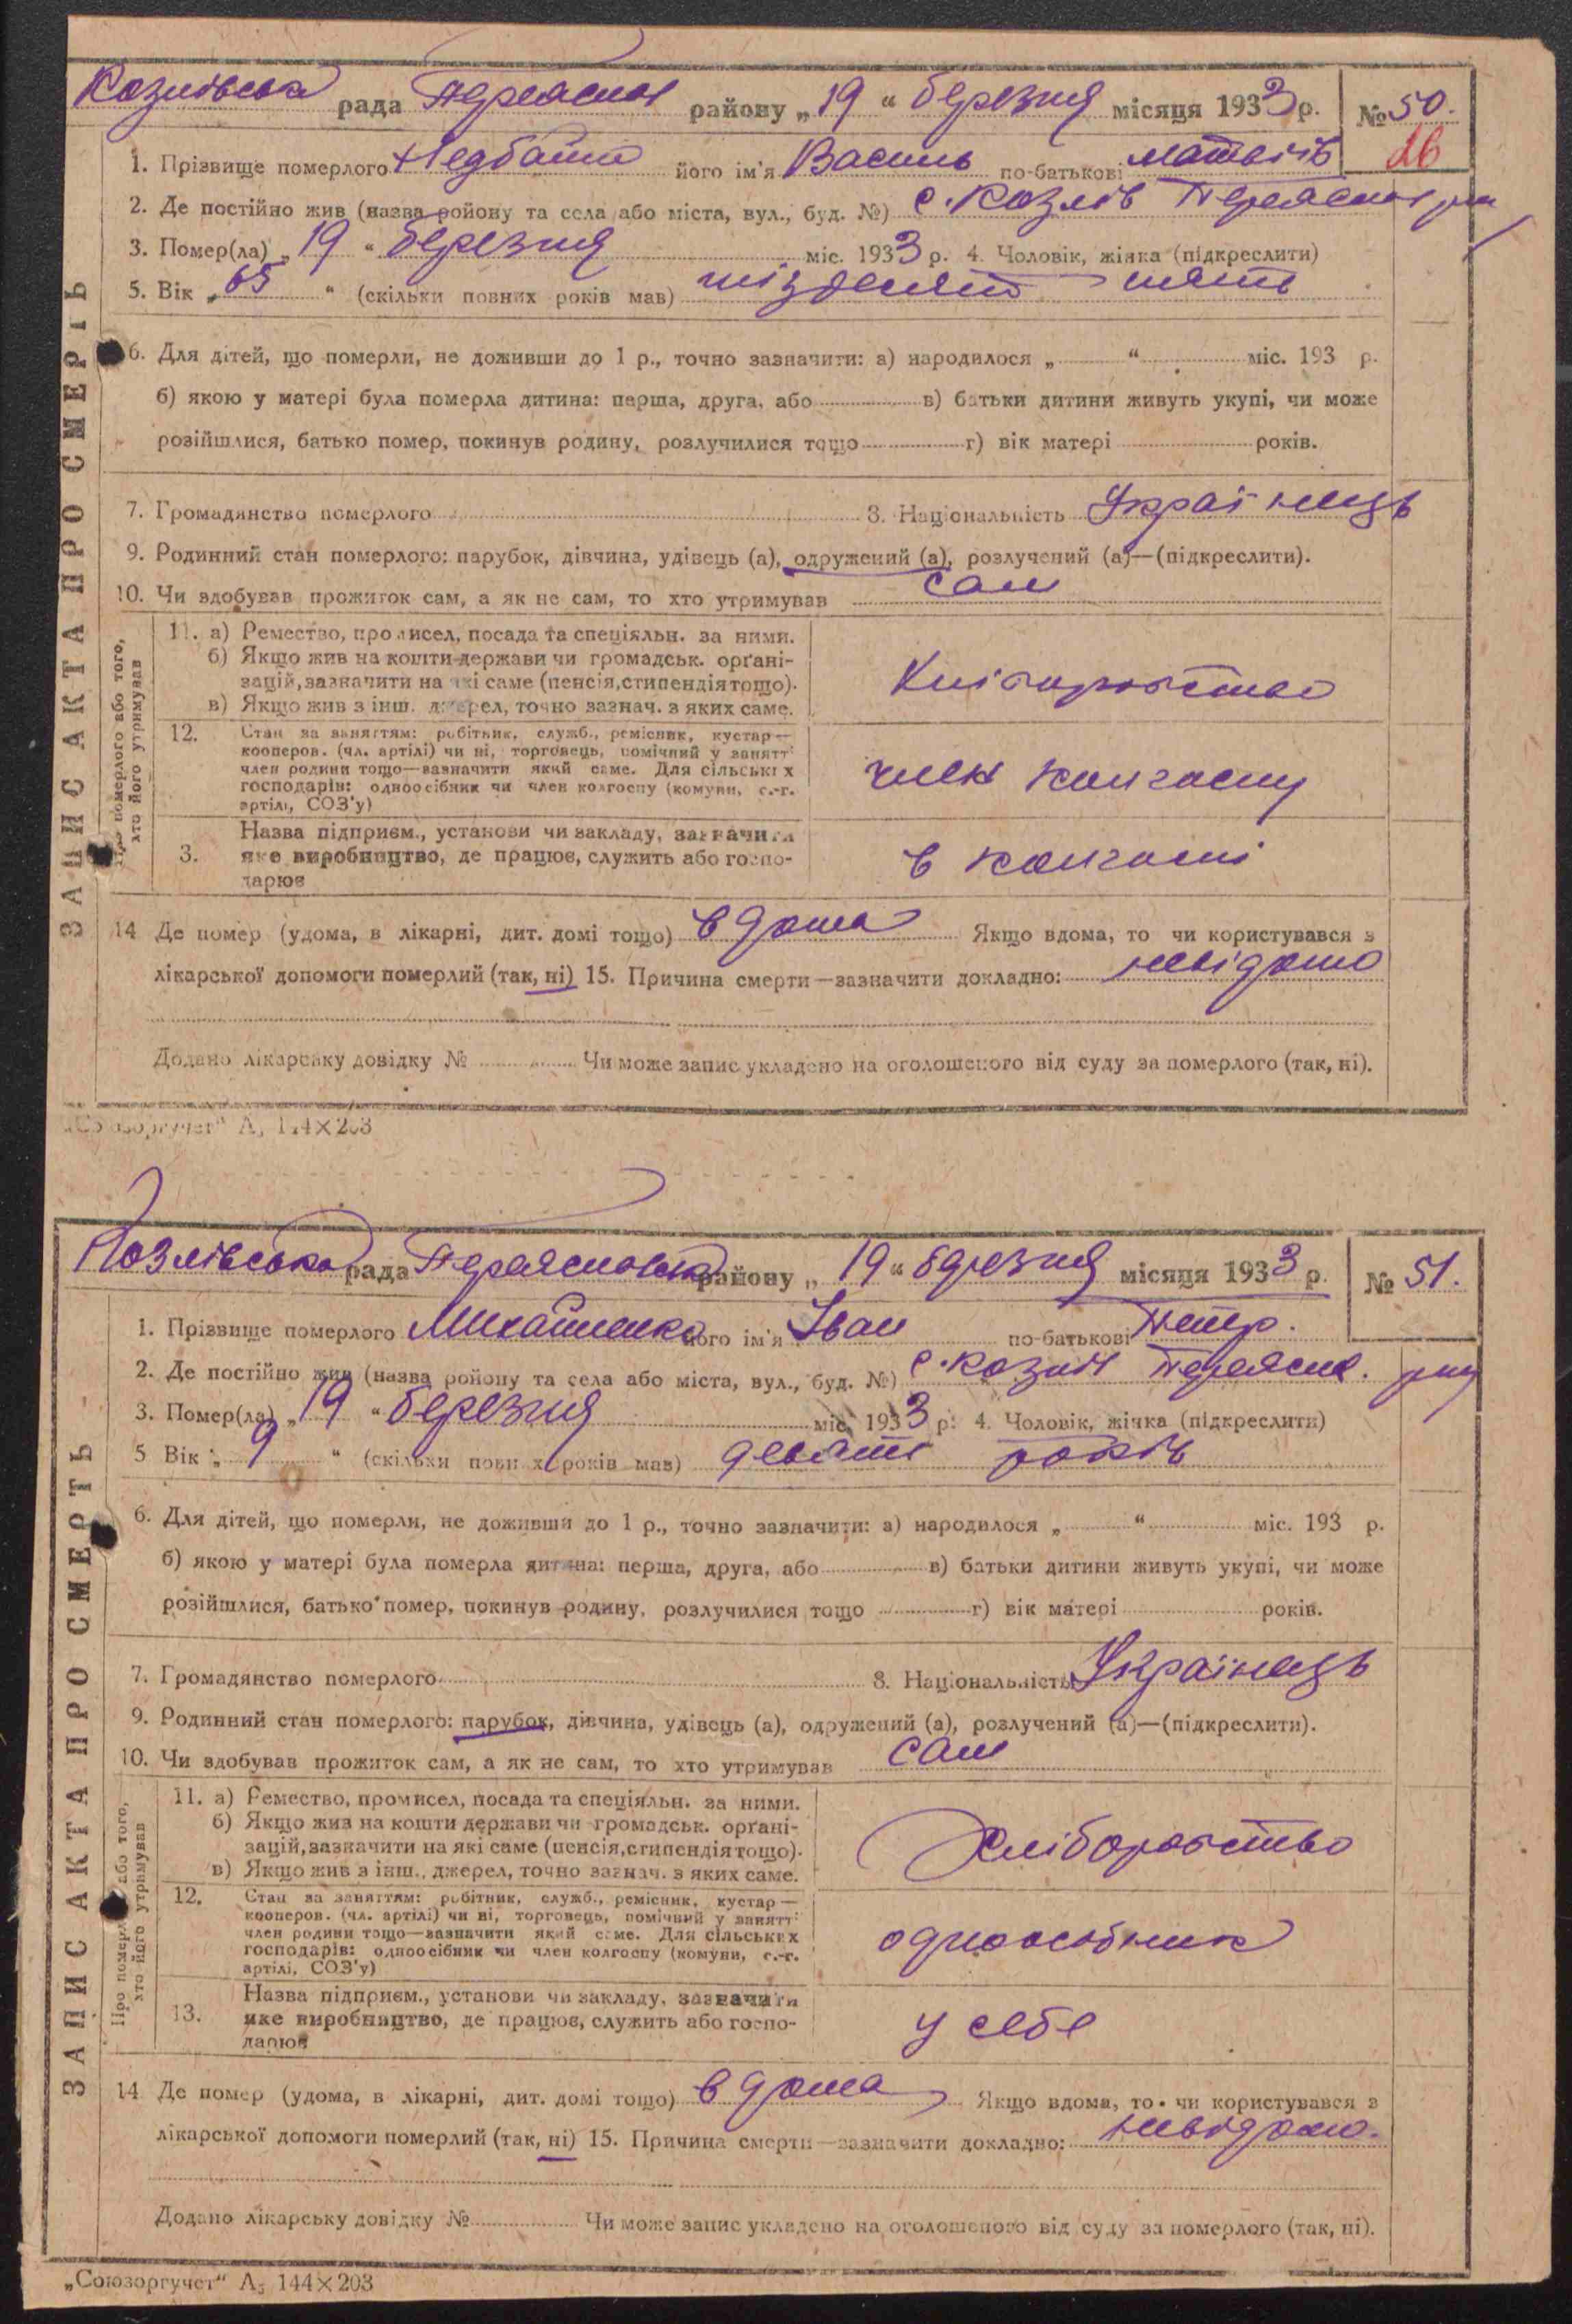 Козлівська рада Переяслов району „19“ березня місяця 1933 р. № 50.
26
1. Прізвище померлого Недбайло його ім'я Василь по-батькові Матвіїв
2. Де постійно жив (назва ройону та села або міста, вул., буд. №) с. Козлів Переяслов р-ну
3. Помер(ла) „19“ березня міс. 1933 р. 4. Чоловік, жінка (підкреслити)
5. Вік „65“ (скільки повних років мав) шізделят пять
6. Для дітей, що померли, не доживши до 1 р., точно зазначити: а) народилося „ “ міс. 193 р.
б) якою у матері була померла дитина: перша, друга, або в) батьки дитини живуть укупі, чи може
розійшлися, батько помер, покинув родину, розлучилися тощо г) вік матері років.
7. Громадянство померлого 8. Національність Українець
9. Родинний стан померлого: парубок, дівчина, удівець (а), одружений (а), розлучений (а)—(підкреслити).
10. Чи здобував прожиток сам, а як не сам, то хто утримував сам
11. а) Ремество, промисел, посада та спеціяльн. за ними.
б) Якщо жив на кошти держави чи громадськ. орґані-
зацій, зазначити на які саме (пенсія, стипендія тощо).
в) Якщо жив з інш. джерел, точно зазнач. з яких саме.
Хліборобство
12. Стан за заняттям: робітник, служб., ремісник, кустар—
кооперов. (чл. артілі) чи ні, торговець, помічний у занятт
член родини тощо—зазначити який саме. Для сільських
господарів: одноосібник чи член колгоспу (комуни, с.-г.
артілі, СОЗ'у)
член колгоспу
3. Назва підприєм., установи чи закладу, зазначити
яке виробництво, де працює, служить або госпо-
дарює
в колгоспі
Про померлого або того,
хто його утримував
14 Де помер (удома, в лікарні, дит. домі тощо) в дома Якщо вдома, то чи користувався з
лікарської допомоги померлий (так, ні) 15. Причина смерти—зазначити докладно: невідомо
Додано лікарську довідку № Чи може запис укладено на оголошеного від суду за померлого (так, ні).
ЗАПИС АКТА ПРО СМЕРТЬ
„Союзоргучет“ А5 144×203
Козлівська рада Переясловськ району „19“ березня місяця 1933 р. № 51.
1. Прізвище померлого Михайленко його ім'я Іван по-батькові Петр.
2. Де постійно жив (назва ройону та села або міста, вул., буд. №) с. Козлів Переясл. р-ну
3. Помер(ла) „19“ березня міс. 1933 р. 4. Чоловік, жінка (підкреслити)
5 Вік „9“ (скільки повних років мав) девять років
6. Для дітей, що померли, не доживши до 1 р., точно зазначити: а) народилося „ “ міс. 193 р.
б) якою у матері була померла дитина: перша, друга, або в) батьки дитини живуть укупі, чи може
розійшлися, батько помер, покинув родину, розлучилися тощо г) вік матері років.
7. Громадянство померлого 8. Національність Українець
9. Родинний стан померлого: парубок, дівчина, удівець (а), одружений (а), розлучений (а)—(підкреслити).
10. Чи здобував прожиток сам, а як не сам, то хто утримував сам
11. а) Ремество, промисел, посада та спеціяльн. за ними.
б) Якщо жив на кошти держави чи громадськ. орґані-
зацій, зазначити на які саме (пенсія, стипендія тощо).
в) Якщо жив з інш. джерел, точно зазнач. з яких саме.
Хліборобство
12. Стан за заняттям: робітник, служб., ремісник, кустар—
кооперов. (чл. артілі) чи ні, торговець, помічний у занятт
член родини тощо—зазначити який саме. Для сільських
господарів: одноосібник чи член колгоспу (комуни, с.-г.
артілі, СОЗ'у)
одноособник
13. Назва підприєм., установи чи закладу, зазначити
яке виробництво, де працює, служить або госпо-
дарює
у себе
Про померл або того,
хто його утримував
14 Де помер (удома, в лікарні, дит. домі тощо) в дома Якщо вдома, то чи користувався з
лікарської допомоги померлий (так, ні) 15. Причина смерти—зазначити докладно: невідомо.
Додано лікарську довідку № Чи може запис укладено на оголошеного від суду за померлого (так, ні).
ЗАПИС АКТА ПРО СМЕРТЬ
„Союзоргучет“ А5 144×203